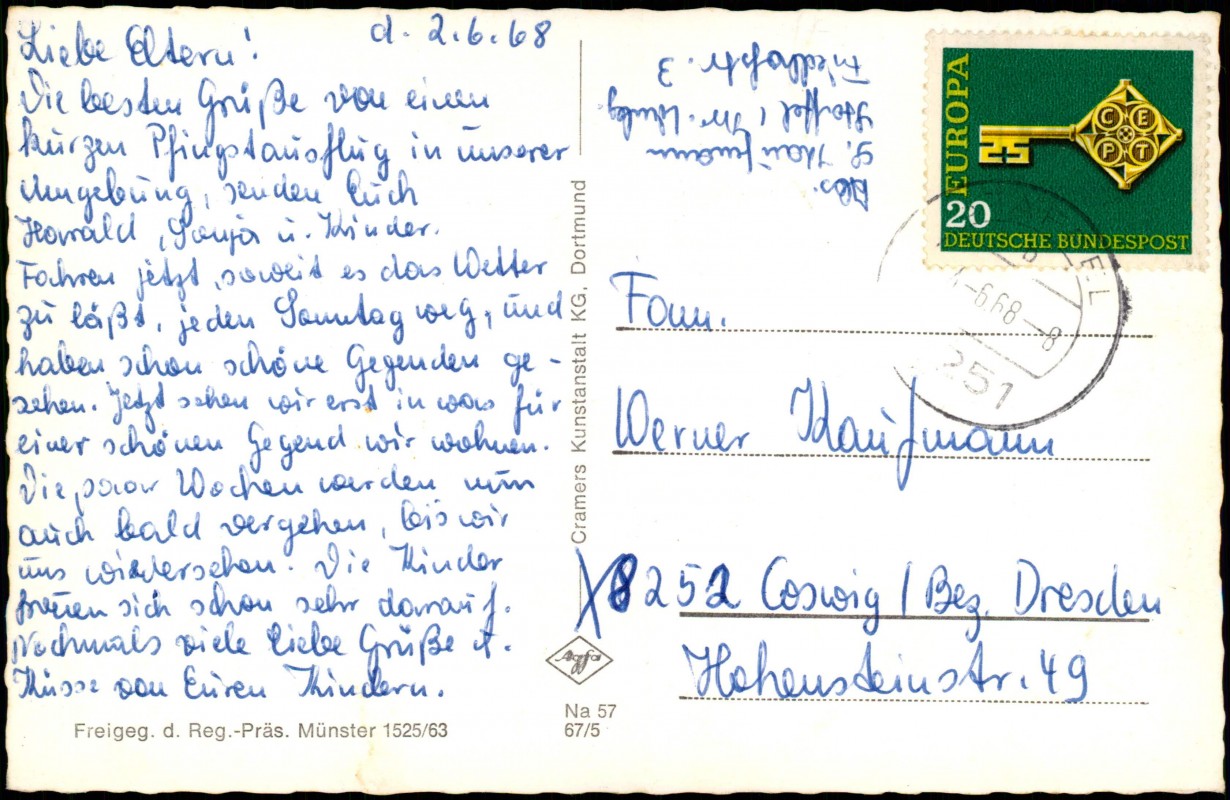 d. 2.6.68
Liebe Eltern!
Die besten Grüße von einem
kurzen Pfingstausflug in unserer
Umgebung, senden Euch
Harald, Sonja u. Kinder.
Fahren jetzt, soweit es das Wetter
zu läßt, jeden Sonntag weg, und
haben schon schöne Gegenden ge-
sehen. Jetzt sehen wir erst in was für
einer schönen Gegend wir wohnen.
Die paar Wochen werden nun
auch bald vergehen, bis wir
uns wiedersehen. Die Kinder
freuen sich schon sehr darauf.
Nochmals viele liebe Grüße u.
Küsse von Euren Kindern.
Freigeg. d. Reg.-Präs. Münster 1525/63
Cramers Kunstanstalt KG, Dortmund
Agfa
Na 57
67/5
Abs.
S. Kaufmann
Friedhofstr. 3
EUROPA
CEPT
20
DEUTSCHE BUNDESPOST
-6.68-8
251
Fam.
Werner Kaufmann
X8252 Coswig / Bez. Dresden
Hohensteinstr. 49